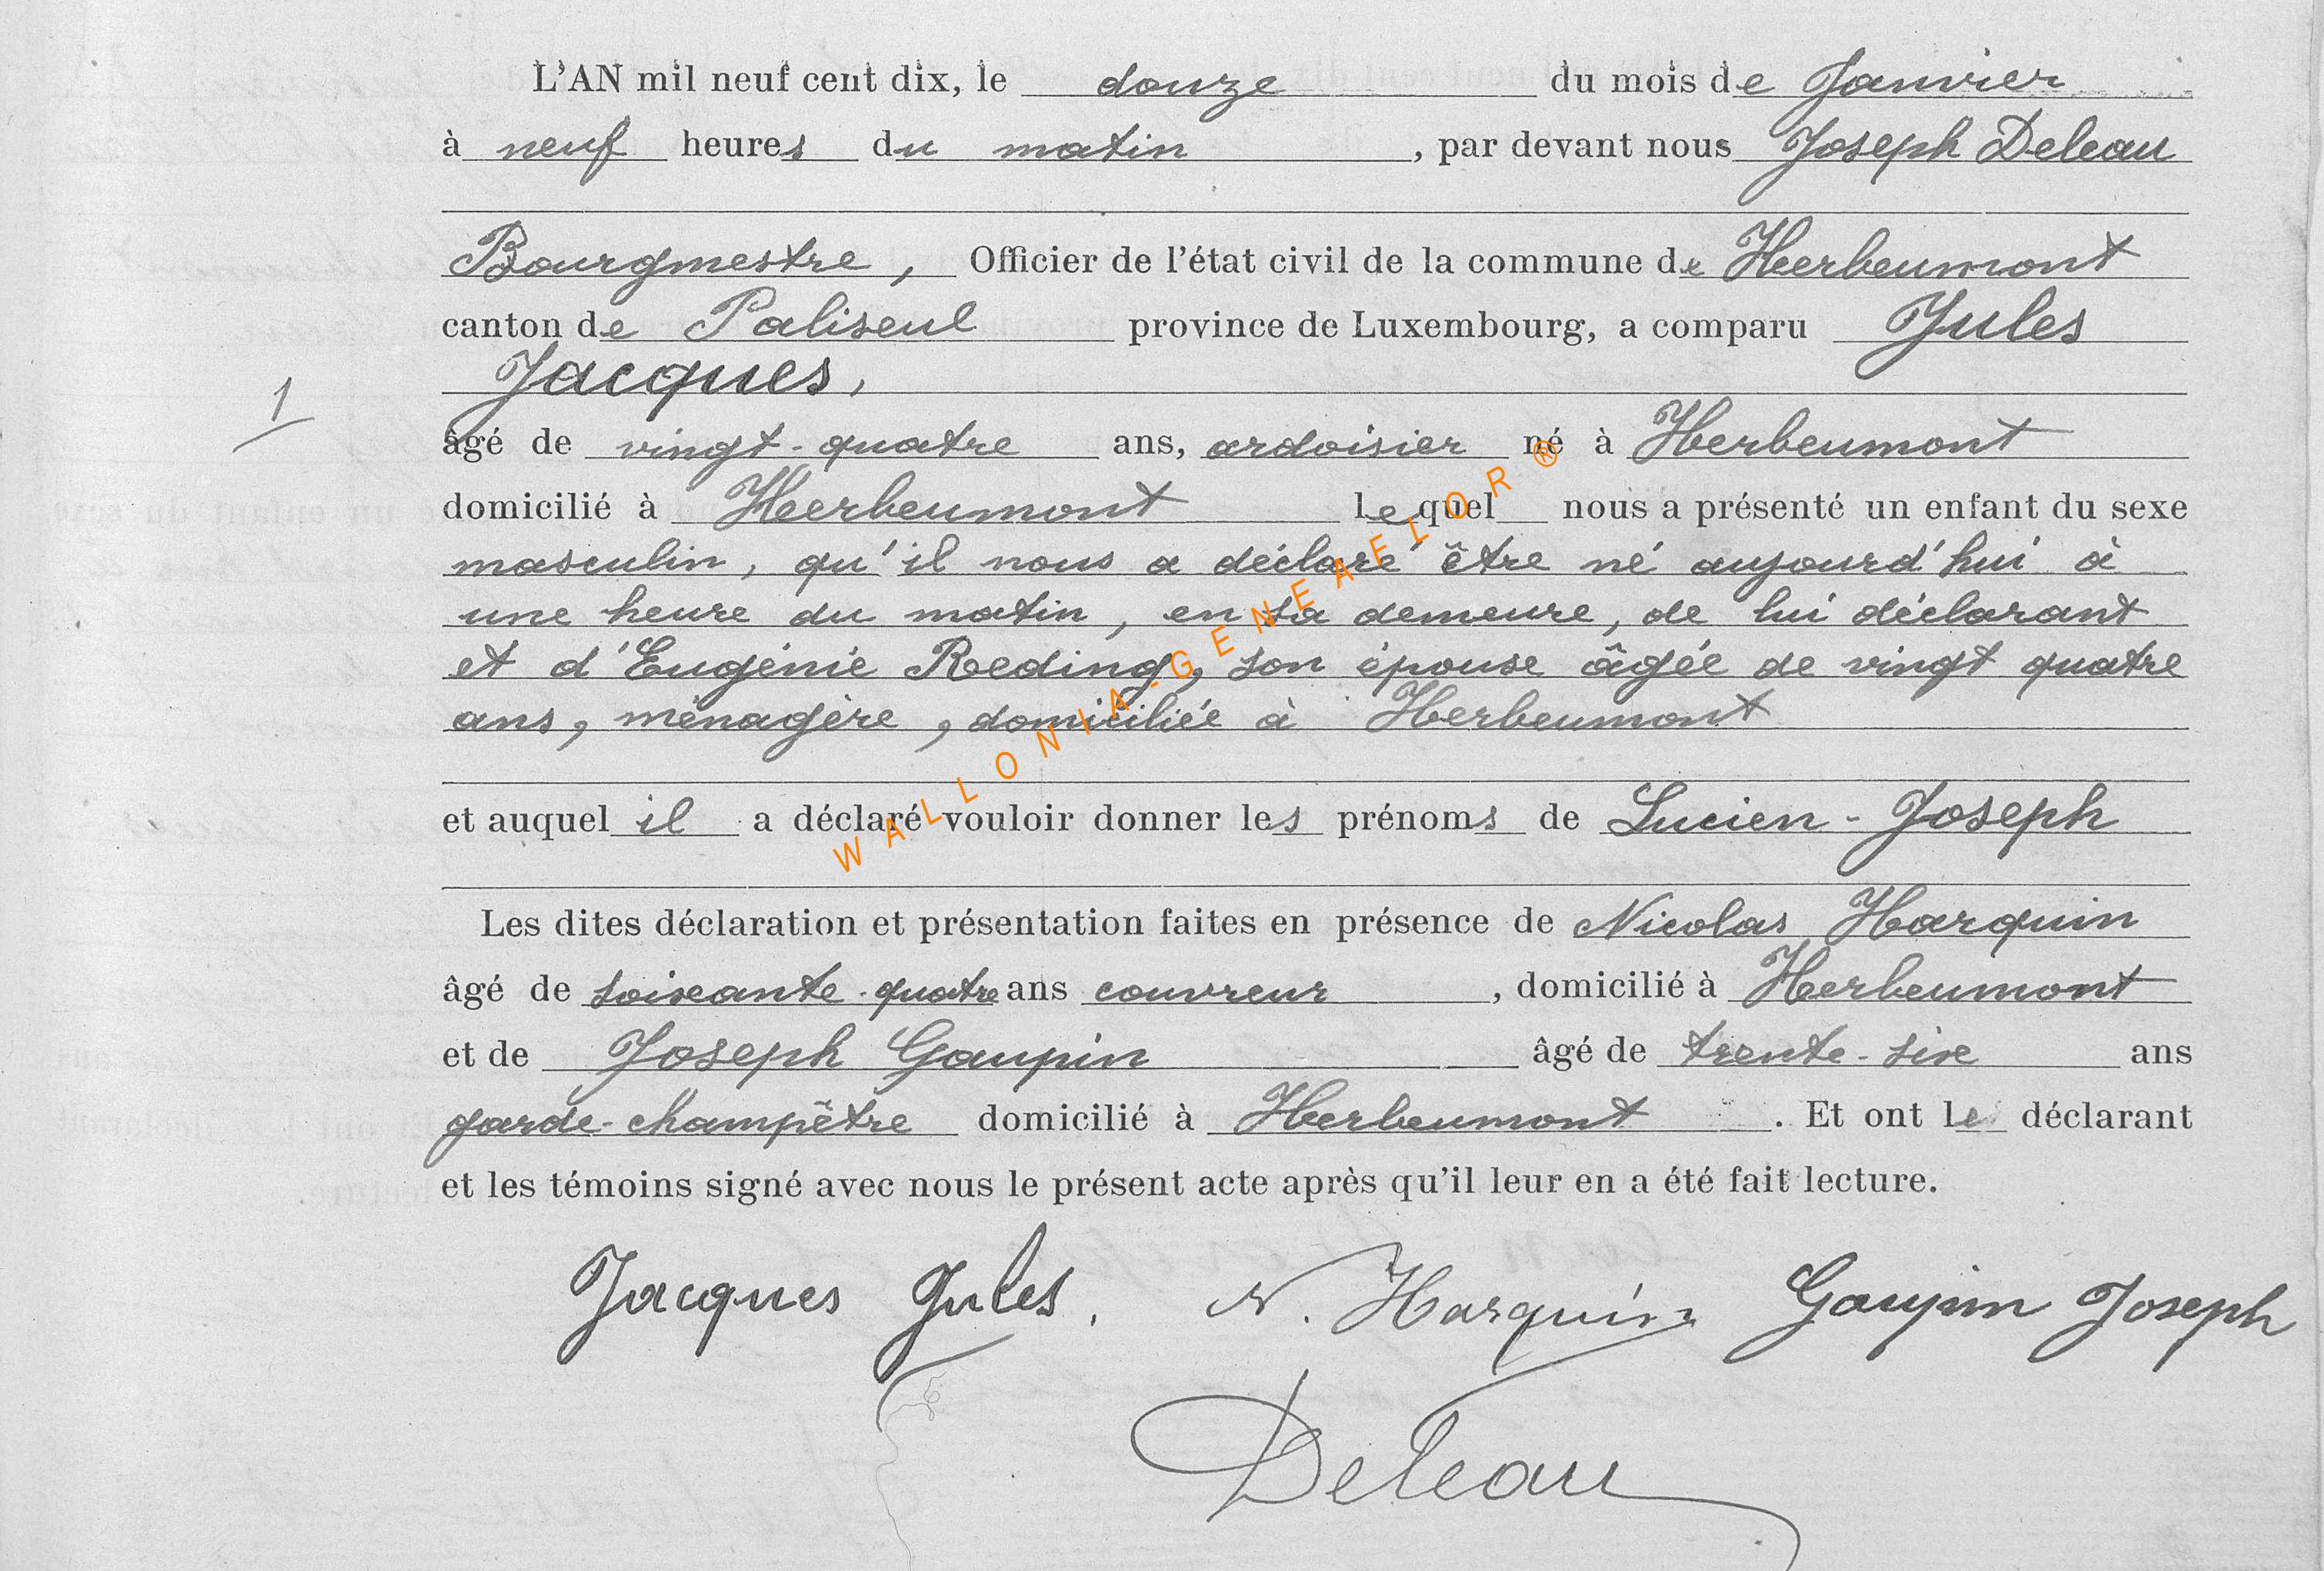 L'AN mil neuf cent dix, le douze du mois de Janvier
à neuf heures du matin , par devant nous Joseph Deleau
Bourgmestre, Officier de l'état civil de la commune de Herbeumont
canton de Paliseul province de Luxembourg, a comparu Jules
Jacques,
1
âgé de vingt-quatre ans, ardoisier né à Herbeumont
domicilié à Herbeumont lequel nous a présenté un enfant du sexe
masculin, qu'il nous a déclaré être né aujourd'hui à
une heure du matin, en sa demeure, de lui déclarant
et d'Eugénie Roeding, son épouse âgée de vingt quatre
ans, ménagère, domiciliée à Herbeumont
et auquel il a déclaré vouloir donner les prénoms de Lucien-Joseph
Les dites déclaration et présentation faites en présence de Nicolas Harquin
âgé de soixante-quatre ans couvreur , domicilié à Herbeumont
et de Joseph Gaupin âgé de trente-six ans
garde-champêtre domicilié à Herbeumont . Et ont le déclarant
et les témoins signé avec nous le présent acte après qu'il leur en a été fait lecture.
Jacques Jules. N. Harquin Gaupin Joseph
Deleau
WALLONIA-GENEAFLOR ®